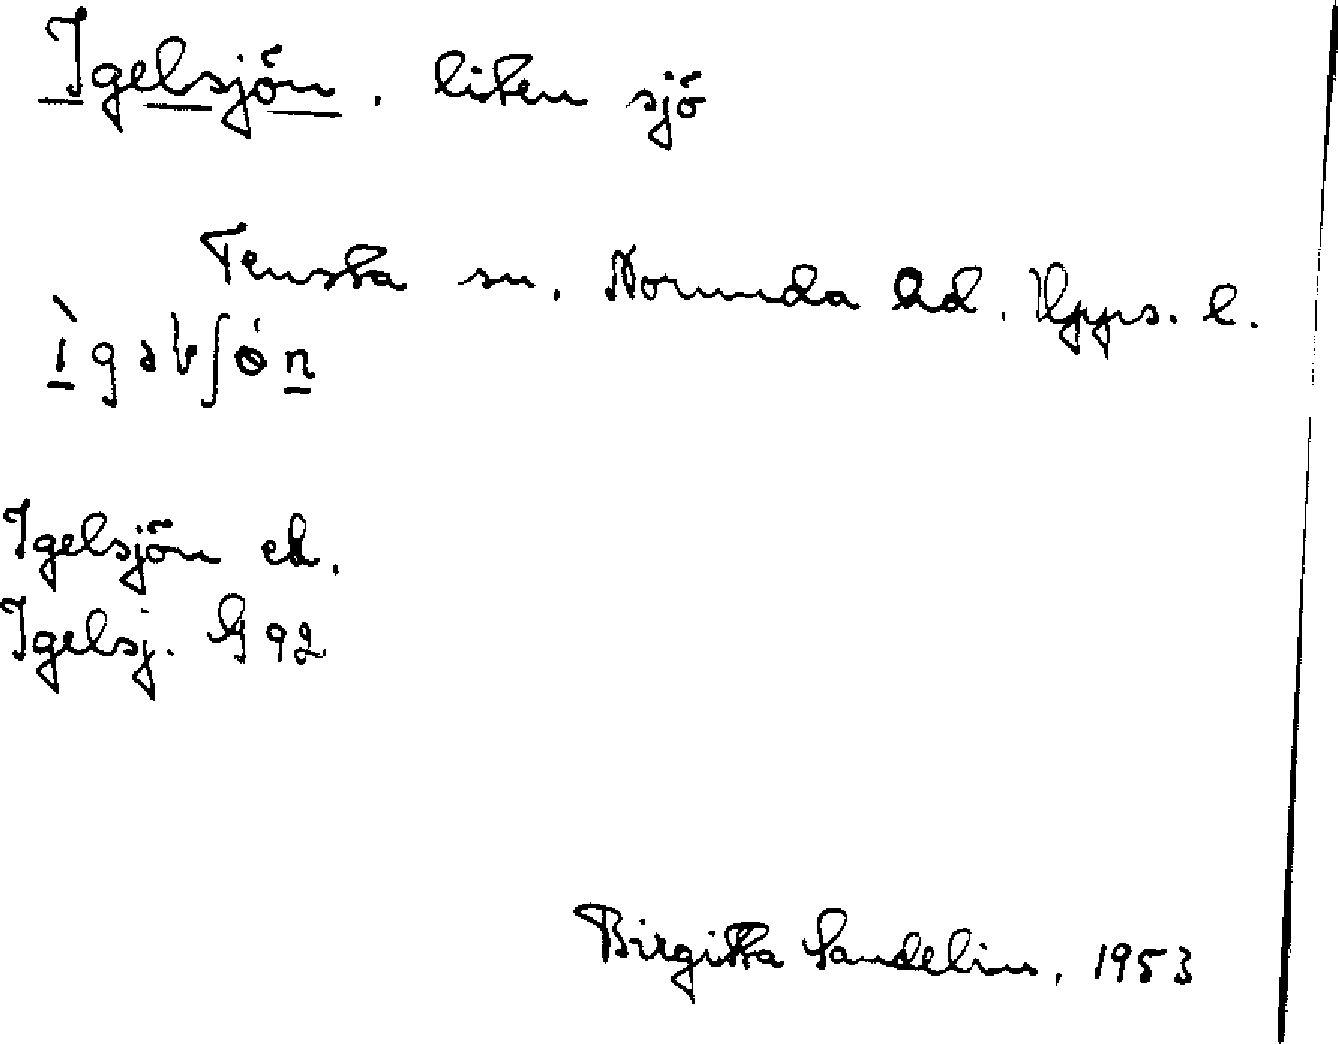 Igelsjön. liten sjö
Tensta sn. Norunda hd. Upps. l.
Igelsjön ek.
Igelsj. G 92
Birgitta Sandelius, 1953